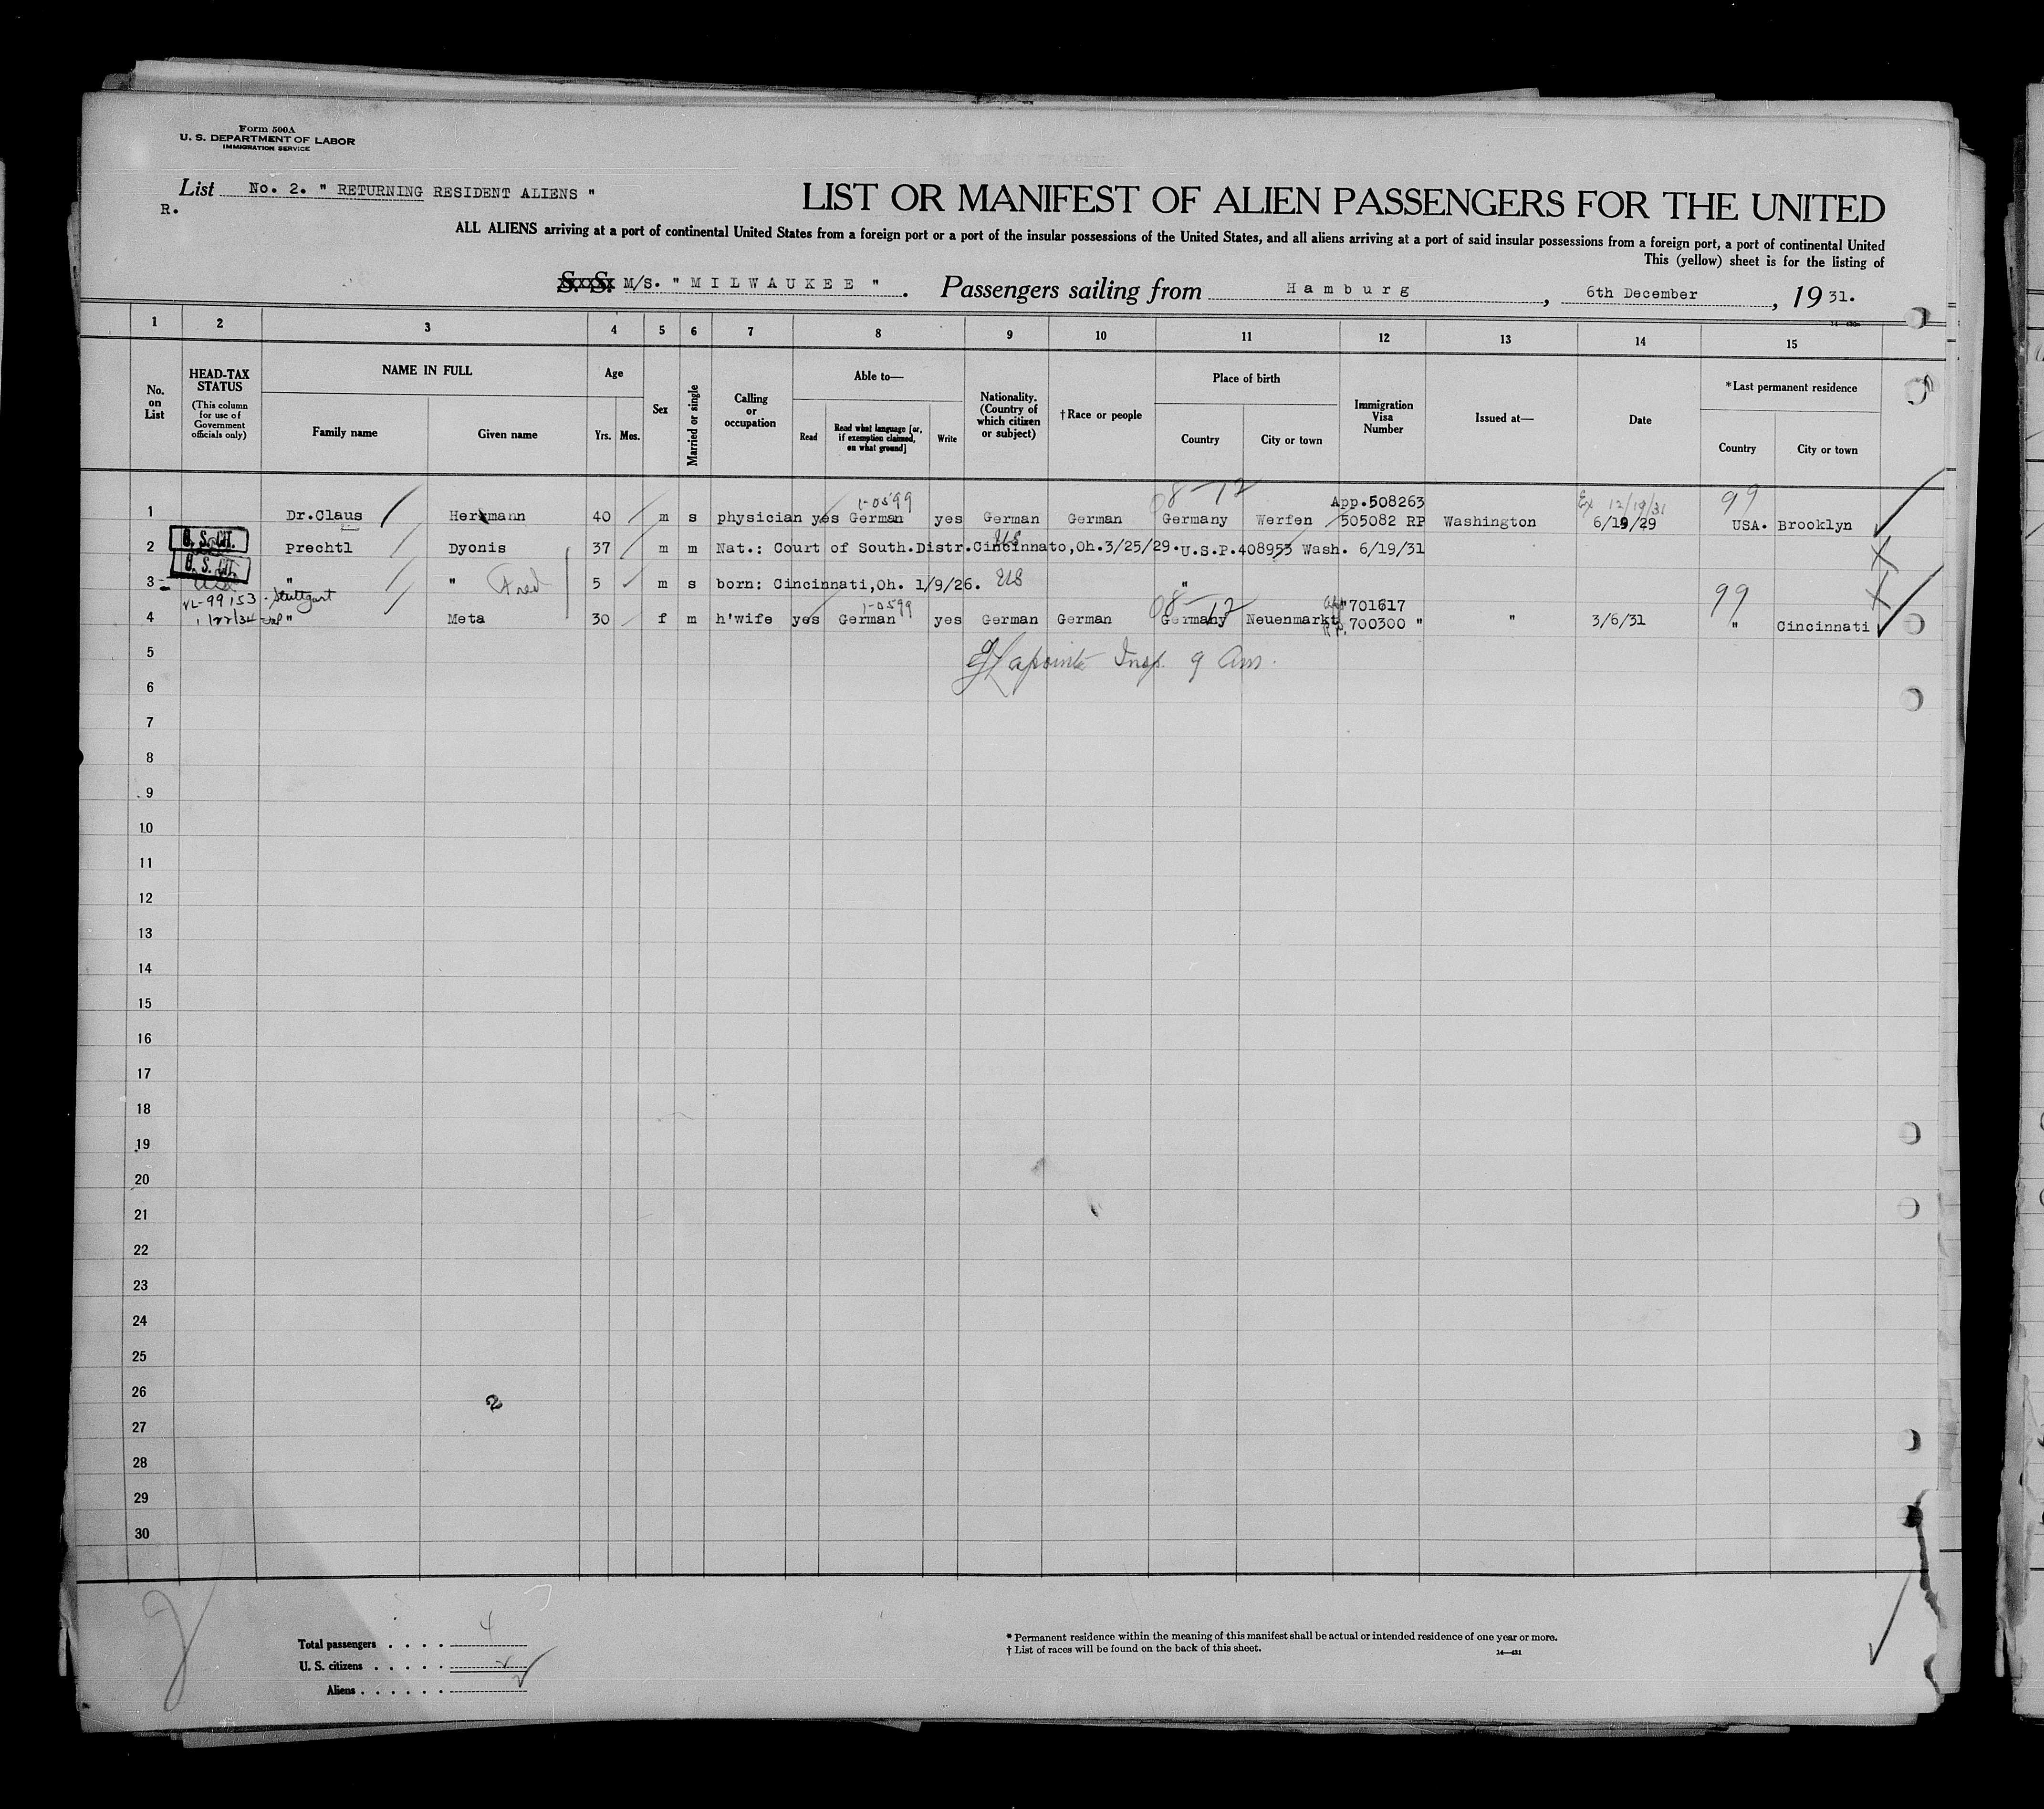 Form 500A
U. S. DEPARTMENT OF LABOR
IMMIGRATION SERVICE
List No. 2. " RETURNING RESIDENT ALIENS "
R.
LIST OR MANIFEST OF ALIEN PASSENGERS FOR THE UNITED
ALL ALIENS arriving at a port of continental United States from a foreign port or a port of the insular possessions of the United States, and all aliens arriving at a port of said insular possessions from a foreign port, a port of continental United
This (yellow) sheet is for the listing of
S. S. M/S. " M I L W A U K E E " . Passengers sailing from H a m b u r g , 6th December , 19 31.
1 2 3 4 5 6 7 8 9 10 11 12 13 14 15
No. on List
HEAD-TAX STATUS
(This column for use of Government officials only)
NAME IN FULL
Family name
Given name
Age
Yrs. Mos.
Sex
Married or single
Calling or occupation
Able to—
Read
Read what language [or, if exemption claimed, on what ground]
Write
Nationality. (Country of which citizen or subject)
† Race or people
Place of birth
Country
City or town
Immigration Visa Number
Issued at—
Date
*Last permanent residence
Country
City or town
1-0599 08-12 App.508263 Ex 12/19/31 99
1 Dr.Claus Herrmann 40 m s physician yes German yes German German Germany Werfen 505082 RP Washington 6/19/29 USA. Brooklyn
U. S. CIT.
2 Prechtl Dyonis 37 m m Nat.: Court of South.Distr.Cincinnato,Oh.3/25/29. U.S.P.408953 Wash. 6/19/31
US
U. S. CIT.
3 " " Fred 5 m s born: Cincinnati,Oh. 1/9/26. US "
VL-99153 - Stuttgart 1-0599 08-12 701617 99
4 1/22/34 " Meta 30 f m h'wife yes German yes German German Germany Neuenmarkt R.P. 700300 " " 3/6/31 " Cincinnati
5
6
7
8
9
10
11
12
13
14
15
16
17
18
19
20
21
22
23
24
25
26
27
28
29
30
2
Total passengers . . . . 4
U. S. citizens . . . . .
Aliens . . . . . .
* Permanent residence within the meaning of this manifest shall be actual or intended residence of one year or more.
† List of races will be found on the back of this sheet.
14—431